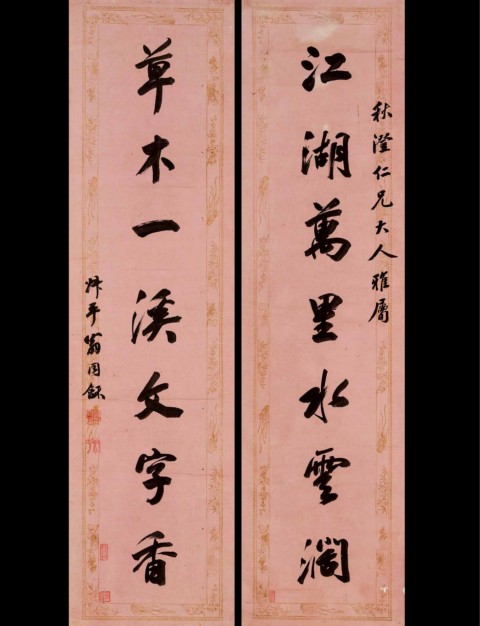 秋澄仁兄大人雅屬
江湖萬里水雲濶
草木一溪文字香
叔平翁同龢